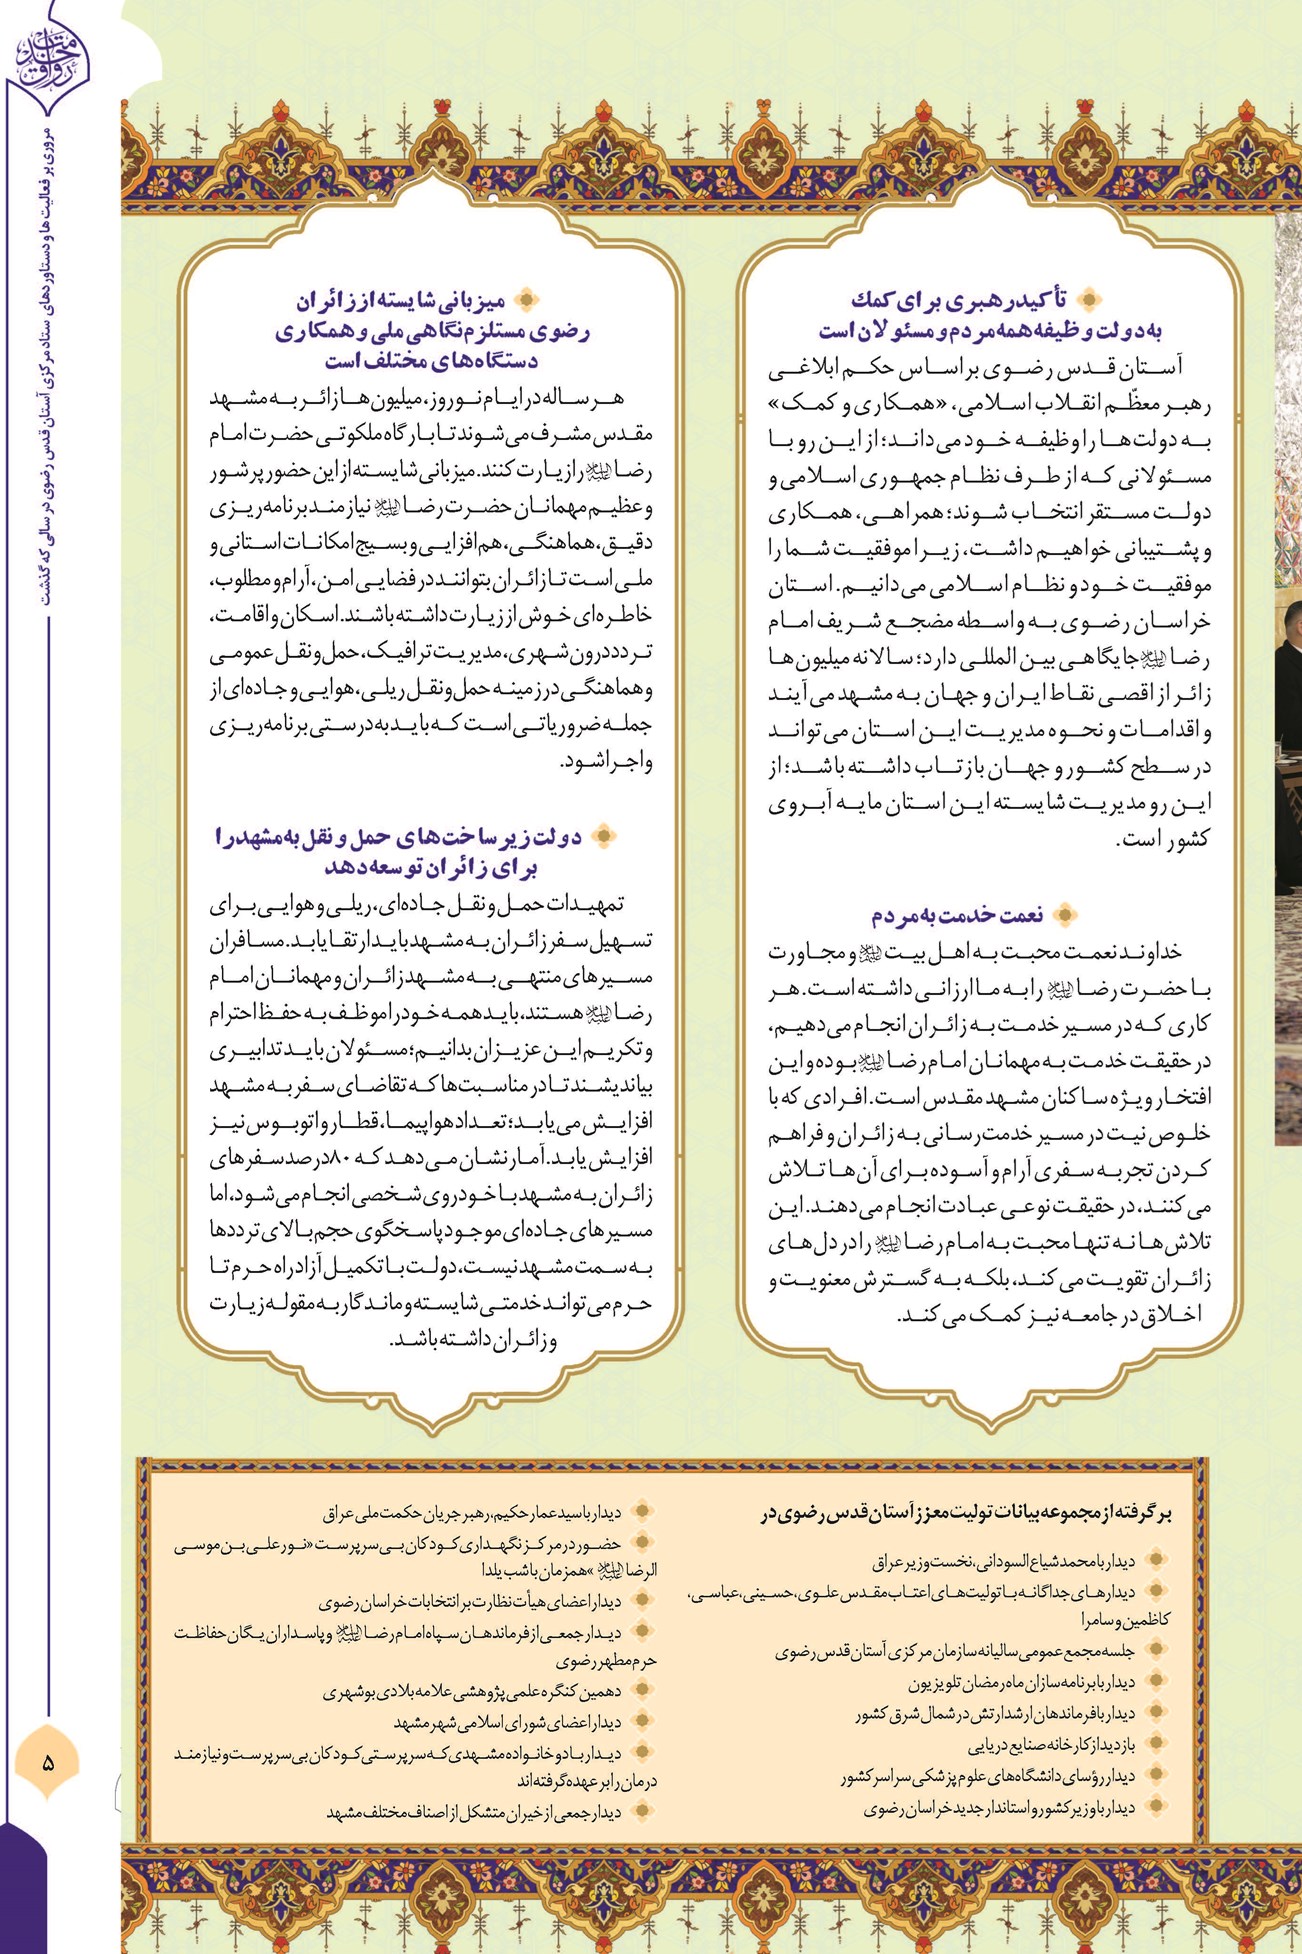 مروری بر فعالیت‌ها و دستاوردهای ستاد مرکزی آستان قدس رضوی در سالی که گذشت
تأکید رهبری برای کمک
به دولت وظیفه همه مردم و مسئولان است
آستان قدس رضوی بر اساس حکم ابلاغی
رهبر معظّم انقلاب اسلامی، «همکاری و کمک»
به دولت‌ها را وظیفه خود می‌داند؛ از این رو با
مسئولانی که از طرف نظام جمهوری اسلامی و
دولت مستقر انتخاب شوند؛ همراهی، همکاری
و پشتیبانی خواهیم داشت، زیرا موفقیت شما را
موفقیت خود و نظام اسلامی می‌دانیم. استان
خراسان رضوی به واسطه مضجع شریف امام
رضا علیه‌السلام جایگاهی بین المللی دارد؛ سالانه میلیون‌ها
زائر از اقصی نقاط ایران و جهان به مشهد می‌آیند
و اقدامات و نحوه مدیریت این استان می‌تواند
در سطح کشور و جهان بازتاب داشته باشد؛ از
این رو مدیریت شایسته این استان مایه آبروی
کشور است.
نعمت خدمت به مردم
خداوند نعمت محبت به اهل بیت علیهم‌السلام و مجاورت
با حضرت رضا علیه‌السلام را به ما ارزانی داشته است. هر
کاری که در مسیر خدمت به زائران انجام می‌دهیم،
در حقیقت خدمت به مهمانان امام رضا علیه‌السلام بوده و این
افتخار ویژه ساکنان مشهد مقدس است. افرادی که با
خلوص نیت در مسیر خدمت‌رسانی به زائران و فراهم
کردن تجربه سفری آرام و آسوده برای آن‌ها تلاش
می‌کنند، در حقیقت نوعی عبادت انجام می‌دهند. این
تلاش‌ها نه تنها محبت به امام رضا علیه‌السلام را در دل‌های
زائران تقویت می‌کند، بلکه به گسترش معنویت و
اخلاق در جامعه نیز کمک می‌کند.
میزبانی شایسته از زائران
رضوی مستلزم نگاهی ملی و همکاری
دستگاه‌های مختلف است
هر ساله در ایام نوروز، میلیون‌ها زائر به مشهد
مقدس مشرف می‌شوند تا بارگاه ملکوتی حضرت امام
رضا علیه‌السلام را زیارت کنند. میزبانی شایسته از این حضور پرشور
و عظیم مهمانان حضرت رضا علیه‌السلام نیازمند برنامه‌ریزی
دقیق، هماهنگی، هم‌افزایی و بسیج امکانات استانی و
ملی است تا زائران بتوانند در فضایی امن، آرام و مطلوب،
خاطره‌ای خوش از زیارت داشته باشند. اسکان و اقامت،
تردد درون شهری، مدیریت ترافیک، حمل و نقل عمومی
و هماهنگی در زمینه حمل و نقل ریلی، هوایی و جاده‌ای از
جمله ضروریاتی است که باید به درستی برنامه‌ریزی
و اجرا شود.
دولت زیرساخت‌های حمل و نقل به مشهد را
برای زائران توسعه دهد
تمهیدات حمل و نقل جاده‌ای، ریلی و هوایی برای
تسهیل سفر زائران به مشهد باید ارتقا یابد. مسافران
مسیرهای منتهی به مشهد زائران و مهمانان امام
رضا علیه‌السلام هستند، باید همه خود را موظف به حفظ احترام
و تکریم این عزیزان بدانیم؛ مسئولان باید تدابیری
بیاندیشند تا در مناسبت‌ها که تقاضای سفر به مشهد
افزایش می‌یابد؛ تعداد هواپیما، قطار و اتوبوس نیز
افزایش یابد. آمار نشان می‌دهد که ۸۰ درصد سفرهای
زائران به مشهد با خودروی شخصی انجام می‌شود، اما
مسیرهای جاده‌ای موجود پاسخگوی حجم بالای ترددها
به سمت مشهد نیست، دولت با تکمیل آزادراه حرم تا
حرم می‌تواند خدمتی شایسته و ماندگار به مقوله زیارت
و زائران داشته باشد.
برگرفته از مجموعه بیانات تولیت معزز آستان قدس رضوی در
دیدار با محمد شیاع السودانی، نخست وزیر عراق
دیدارهای جداگانه با تولیت‌های اعتاب مقدس علوی، حسینی، عباسی،
کاظمین و سامرا
جلسه مجمع عمومی سالیانه سازمان مرکزی آستان قدس رضوی
دیدار با برنامه سازان ماه رمضان تلویزیون
دیدار با فرماندهان ارشد ارتش در شمال شرق کشور
بازدید از کارخانه صنایع دریایی
دیدار رؤسای دانشگاه‌های علوم پزشکی سراسر کشور
دیدار با وزیر کشور و استاندار جدید خراسان رضوی
دیدار با سید عمار حکیم، رهبر جریان حکمت ملی عراق
حضور در مرکز نگهداری کودکان بی‌سرپرست «نور علی بن موسی
الرضا علیه‌السلام» همزمان با شب یلدا
دیدار اعضای هیأت نظارت بر انتخابات خراسان رضوی
دیدار جمعی از فرماندهان سپاه امام رضا علیه‌السلام و پاسداران یگان حفاظت
حرم مطهر رضوی
دهمین کنگره علمی پژوهشی علامه بلادی بوشهری
دیدار اعضای شورای اسلامی شهر مشهد
دیدار با دو خانواده مشهدی که سرپرستی کودکان بی‌سرپرست و نیازمند
درمان را بر عهده گرفته‌اند
دیدار جمعی از خیران متشکل از اصناف مختلف مشهد
۵